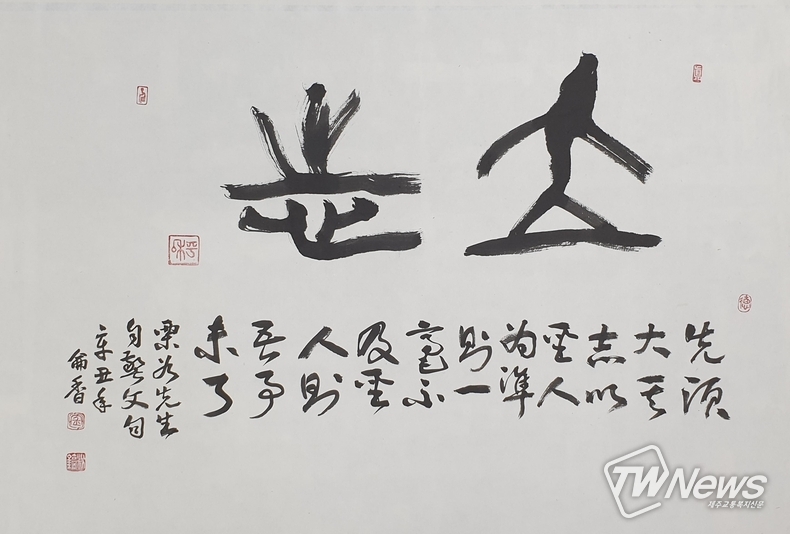 立志
先須
大其
志以
聖人
為準
則一
毫不
及聖
人則
吾事
未了
栗谷先生
自警文句
辛丑年
TWNews
제주교통복지신문